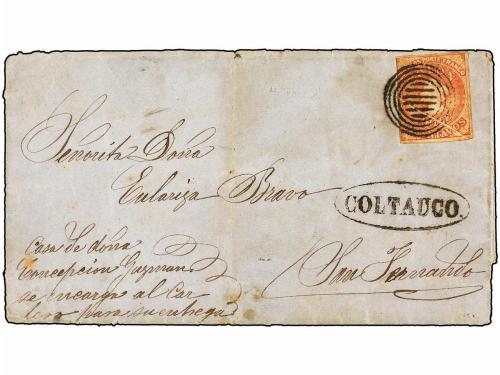 Señorita Doña
Eulariza Bravo
COLTAUCO.
San Fernando
Casa de doña
Concepcion Guzman
se encarga al Car
tero para su entrega